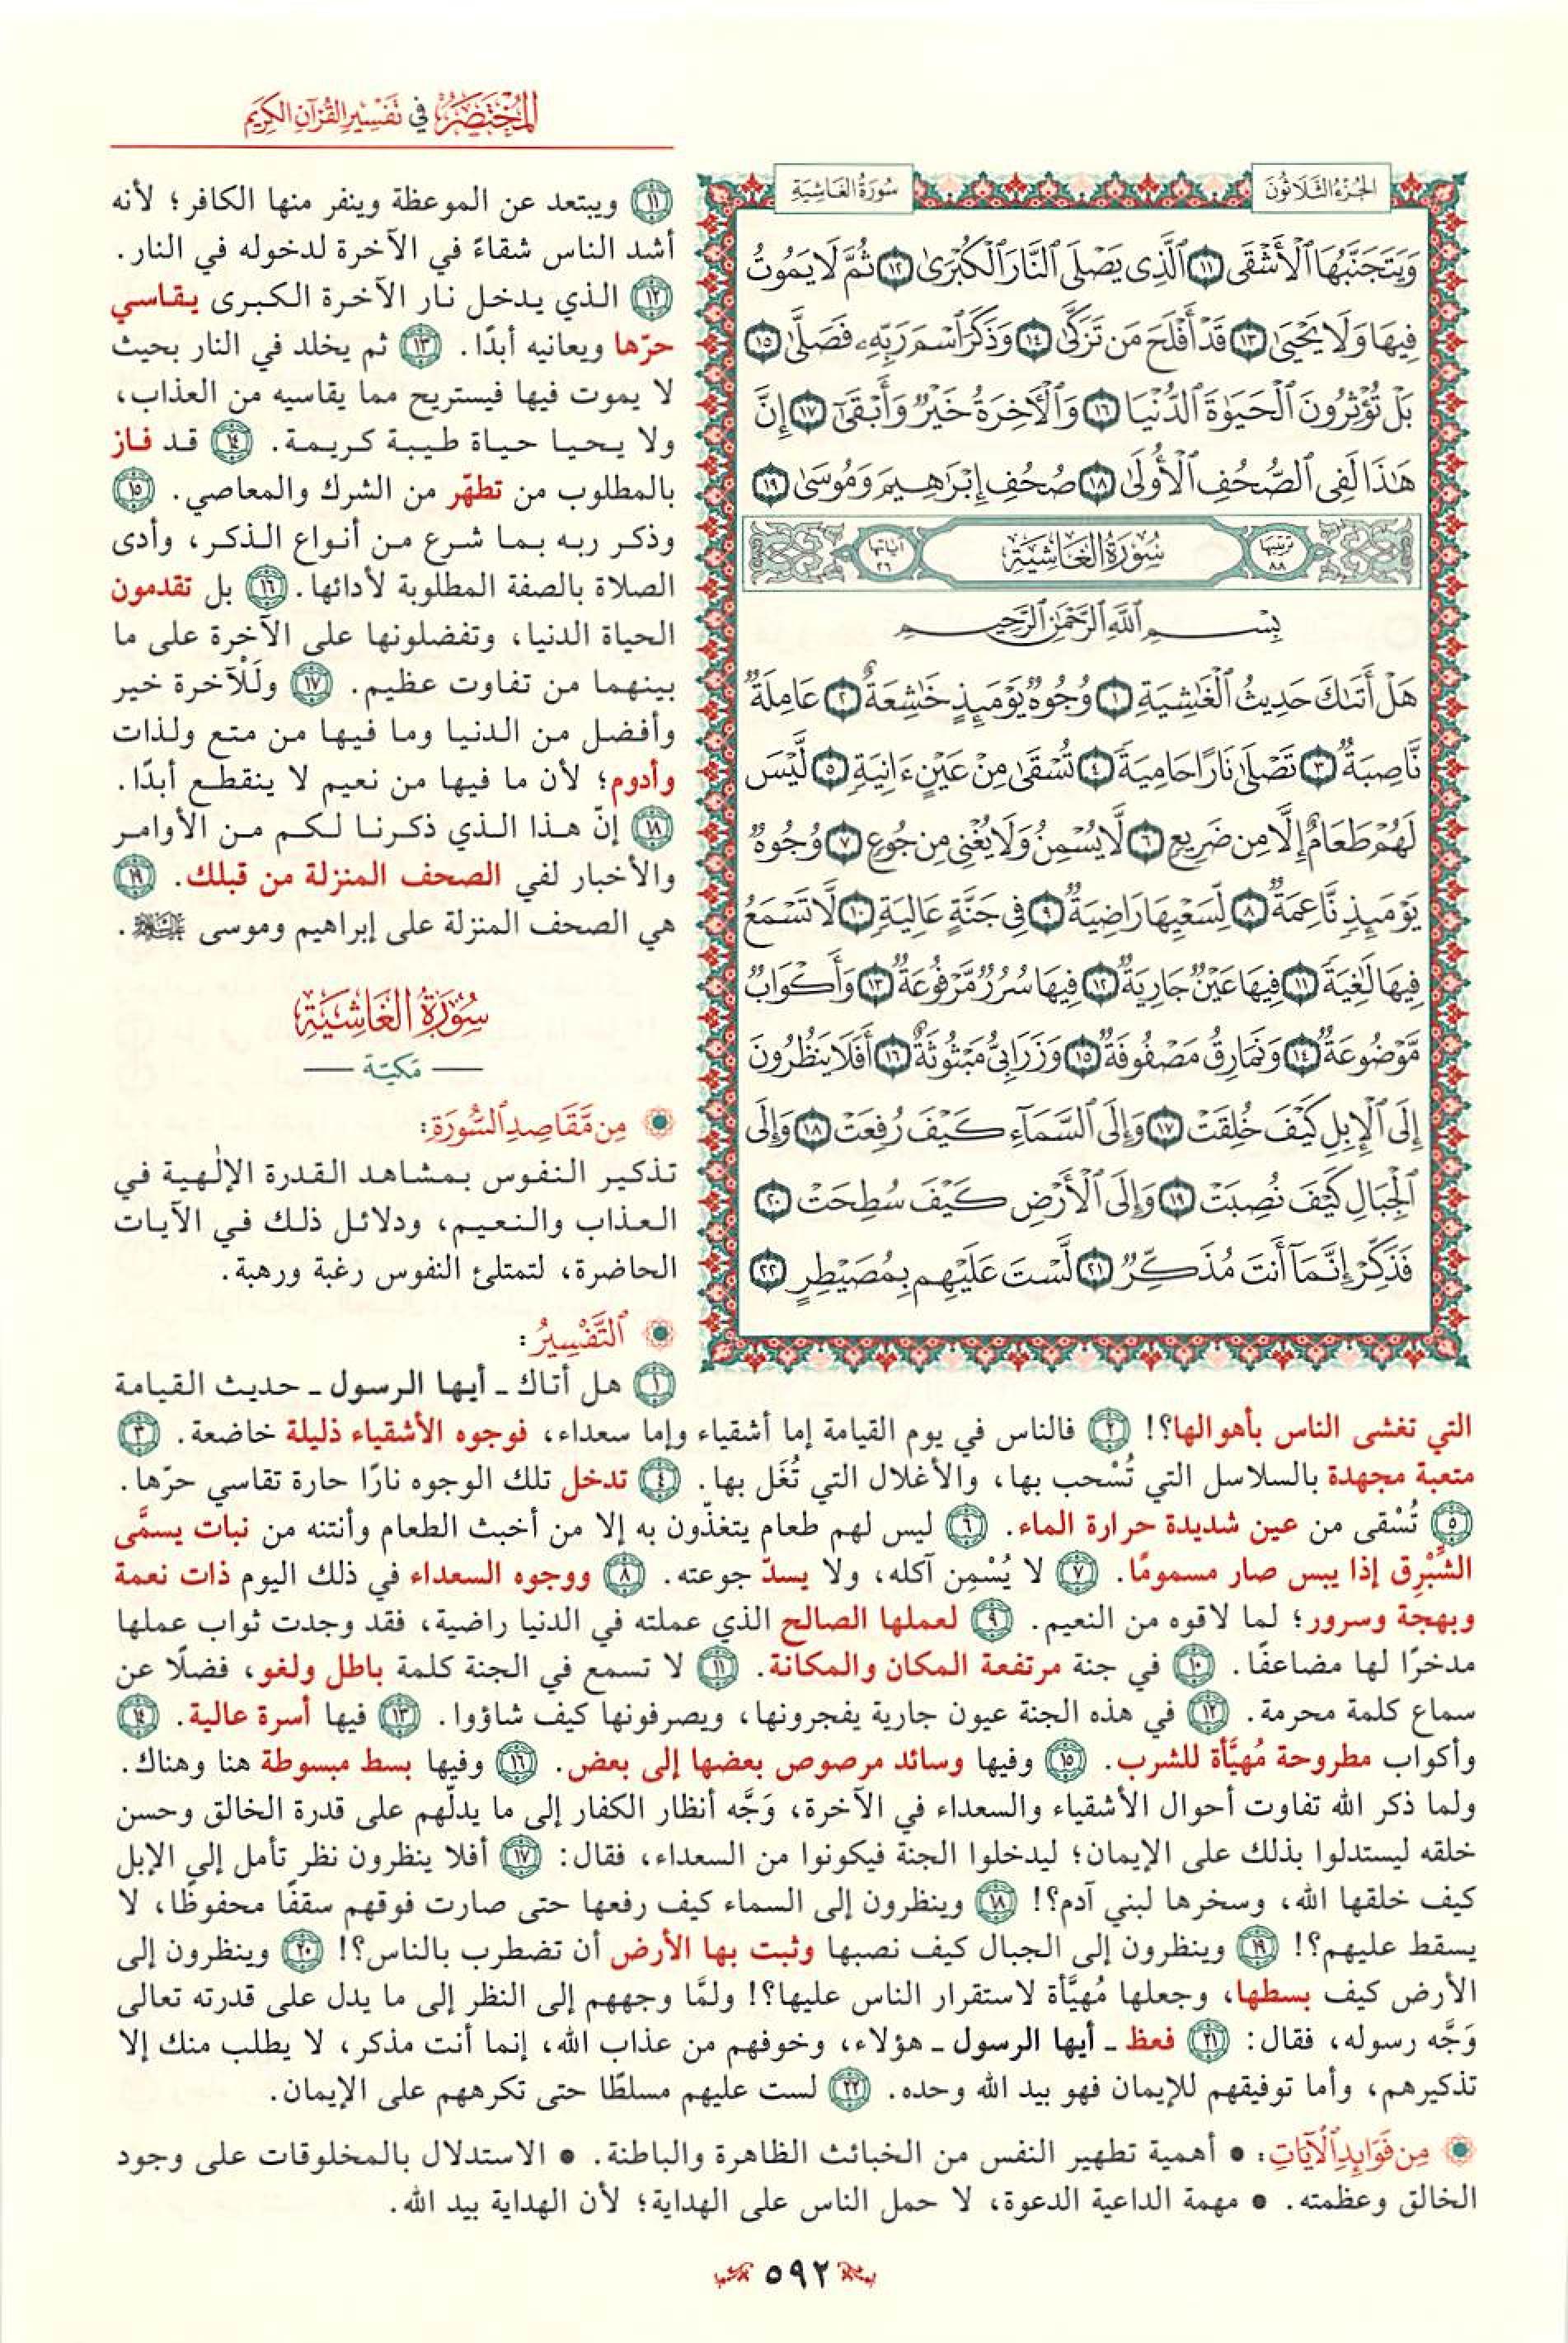 المختصر في تفسير القرآن الكريم
الجزء الثلاثون
سورة الغاشية
وَيَتَجَنَّبُهَا ٱلْأَشْقَى ١١ ٱلَّذِى يَصْلَى ٱلنَّارَ ٱلْكُبْرَىٰ ١٢ ثُمَّ لَا يَمُوتُ
فِيهَا وَلَا يَحْيَىٰ ١٣ قَدْ أَفْلَحَ مَن تَزَكَّىٰ ١٤ وَذَكَرَ ٱسْمَ رَبِّهِۦ فَصَلَّىٰ ١٥
بَلْ تُؤْثِرُونَ ٱلْحَيَوٰةَ ٱلدُّنْيَا ١٦ وَٱلْأٓخِرَةُ خَيْرٌ وَأَبْقَىٰٓ ١٧ إِنَّ
هَٰذَا لَفِى ٱلصُّحُفِ ٱلْأُولَىٰ ١٨ صُحُفِ إِبْرَٰهِيمَ وَمُوسَىٰ ١٩
ترتيبها ٨٨ سُورَةُ الغَاشِيَةِ آياتها ٢٦
بِسْمِ ٱللَّهِ ٱلرَّحْمَٰنِ ٱلرَّحِيمِ
هَلْ أَتَىٰكَ حَدِيثُ ٱلْغَٰشِيَةِ ١ وُجُوهٌ يَوْمَئِذٍ خَٰشِعَةٌ ٢ عَامِلَةٌ
نَّاصِبَةٌ ٣ تَصْلَىٰ نَارًا حَامِيَةً ٤ تُسْقَىٰ مِنْ عَيْنٍ ءَانِيَةٍ ٥ لَّيْسَ
لَهُمْ طَعَامٌ إِلَّا مِن ضَرِيعٍ ٦ لَّا يُسْمِنُ وَلَا يُغْنِى مِن جُوعٍ ٧ وُجُوهٌ
يَوْمَئِذٍ نَّاعِمَةٌ ٨ لِّسَعْيِهَا رَاضِيَةٌ ٩ فِى جَنَّةٍ عَالِيَةٍ ١٠ لَّا تَسْمَعُ
فِيهَا لَٰغِيَةً ١١ فِيهَا عَيْنٌ جَارِيَةٌ ١٢ فِيهَا سُرُرٌ مَّرْفُوعَةٌ ١٣ وَأَكْوَابٌ
مَّوْضُوعَةٌ ١٤ وَنَمَارِقُ مَصْفُوفَةٌ ١٥ وَزَرَابِىُّ مَبْثُوثَةٌ ١٦ أَفَلَا يَنظُرُونَ
إِلَى ٱلْإِبِلِ كَيْفَ خُلِقَتْ ١٧ وَإِلَى ٱلسَّمَآءِ كَيْفَ رُفِعَتْ ١٨ وَإِلَى
ٱلْجِبَالِ كَيْفَ نُصِبَتْ ١٩ وَإِلَى ٱلْأَرْضِ كَيْفَ سُطِحَتْ ٢٠
فَذَكِّرْ إِنَّمَآ أَنتَ مُذَكِّرٌ ٢١ لَّسْتَ عَلَيْهِم بِمُصَيْطِرٍ ٢٢
١١ ويبتعد عن الموعظة وينفر منها الكافر؛ لأنه
أشد الناس شقاءً في الآخرة لدخوله في النار.
١٢ الذي يدخل نار الآخرة الكبرى يقاسي
حرّها ويعانيه أبدًا. ١٣ ثم يخلد في النار بحيث
لا يموت فيها فيستريح مما يقاسيه من العذاب،
ولا يحيا حياة طيبة كريمة. ١٤ قد فاز
بالمطلوب من تطهّر من الشرك والمعاصي. ١٥
وذكر ربه بما شرع من أنواع الذكر، وأدى
الصلاة بالصفة المطلوبة لأدائها. ١٦ بل تقدمون
الحياة الدنيا، وتفضلونها على الآخرة على ما
بينهما من تفاوت عظيم. ١٧ ولَلْآخرة خير
وأفضل من الدنيا وما فيها من متع ولذات
وأدوم؛ لأن ما فيها من نعيم لا ينقطع أبدًا.
١٨ إنّ هذا الذي ذكرنا لكم من الأوامر
والأخبار لفي الصحف المنزلة من قبلك. ١٩
هي الصحف المنزلة على إبراهيم وموسى .
سُورَةُ الغَاشِيَةِ
— مَكيّة —
مِن مَّقَاصِدِ ٱلسُّورَةِ:
تذكير النفوس بمشاهد القدرة الإلٰهية في
العذاب والنعيم، ودلائل ذلك في الآيات
الحاضرة، لتمتلئ النفوس رغبة ورهبة.
ٱلتَّفْسِيرُ:
١ هل أتاك ـ أيها الرسول ـ حديث القيامة
التي تغشى الناس بأهوالها؟! ٢ فالناس في يوم القيامة إما أشقياء وإما سعداء، فوجوه الأشقياء ذليلة خاضعة. ٣
متعبة مجهدة بالسلاسل التي تُسْحب بها، والأغلال التي تُغَل بها. ٤ تدخل تلك الوجوه نارًا حارة تقاسي حرّها.
٥ تُسْقى من عين شديدة حرارة الماء. ٦ ليس لهم طعام يتغذّون به إلا من أخبث الطعام وأنتنه من نبات يسمَّى
الشِّبْرِق إذا يبس صار مسمومًا. ٧ لا يُسْمِن آكله، ولا يسدّ جوعته. ٨ ووجوه السعداء في ذلك اليوم ذات نعمة
وبهجة وسرور؛ لما لاقوه من النعيم. ٩ لعملها الصالح الذي عملته في الدنيا راضية، فقد وجدت ثواب عملها
مدخرًا لها مضاعفًا. ١٠ في جنة مرتفعة المكان والمكانة. ١١ لا تسمع في الجنة كلمة باطل ولغو، فضلًا عن
سماع كلمة محرمة. ١٢ في هذه الجنة عيون جارية يفجرونها، ويصرفونها كيف شاؤوا. ١٣ فيها أسرة عالية. ١٤
وأكواب مطروحة مُهيَّأة للشرب. ١٥ وفيها وسائد مرصوص بعضها إلى بعض. ١٦ وفيها بسط مبسوطة هنا وهناك.
ولما ذكر الله تفاوت أحوال الأشقياء والسعداء في الآخرة، وَجَّه أنظار الكفار إلى ما يدلّهم على قدرة الخالق وحسن
خلقه ليستدلوا بذلك على الإيمان؛ ليدخلوا الجنة فيكونوا من السعداء، فقال: ١٧ أفلا ينظرون نظر تأمل إلى الإبل
كيف خلقها الله، وسخرها لبني آدم؟! ١٨ وينظرون إلى السماء كيف رفعها حتى صارت فوقهم سقفًا محفوظًا، لا
يسقط عليهم؟! ١٩ وينظرون إلى الجبال كيف نصبها وثبت بها الأرض أن تضطرب بالناس؟! ٢٠ وينظرون إلى
الأرض كيف بسطها، وجعلها مُهيَّأة لاستقرار الناس عليها؟! ولمَّا وجههم إلى النظر إلى ما يدل على قدرته تعالى
وَجَّه رسوله، فقال: ٢١ فعظ ـ أيها الرسول ـ هؤلاء، وخوفهم من عذاب الله، إنما أنت مذكر، لا يطلب منك إلا
تذكيرهم، وأما توفيقهم للإيمان فهو بيد الله وحده. ٢٢ لست عليهم مسلطًا حتى تكرههم على الإيمان.
مِن فَوَائِدِ ٱلْآيَاتِ: • أهمية تطهير النفس من الخبائث الظاهرة والباطنة. • الاستدلال بالمخلوقات على وجود
الخالق وعظمته. • مهمة الداعية الدعوة، لا حمل الناس على الهداية؛ لأن الهداية بيد الله.
٥٩٢